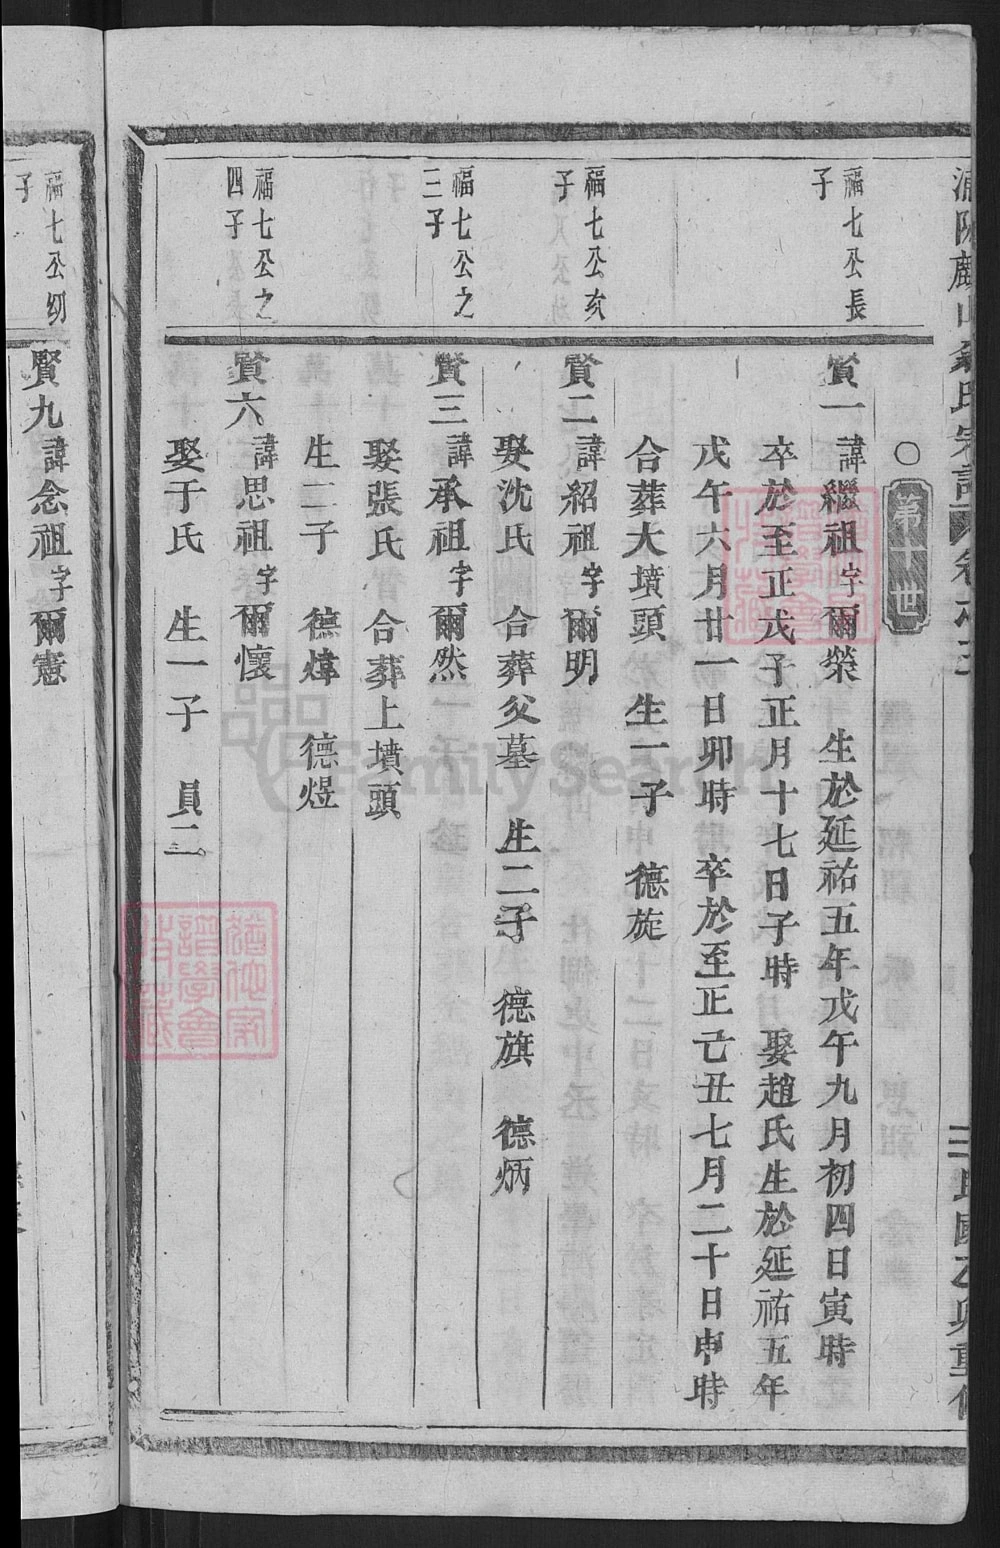 第十世
福七公長
子
賢一諱繼祖字爾榮 生於延祐五年戊午九月初四日寅時
卒於至正戊子正月十七日子時 娶趙氏生於延祐五年
戊午六月廿一日卯時 卒於至正己丑七月二十日申時
合葬大墳頭 生一子 德旋
福七公次
子
賢二諱紹祖字爾明
娶沈氏 合葬父墓 生二子 德旗 德炳
福七公之
三子
賢三諱承祖字爾然
娶張氏 合葬上墳頭
生二子 德煒 德煜
福七公之
四子
賢六諱思祖字爾懷
娶于氏 生一子 員二
福七公幼
子
賢九諱念祖字爾憲
民國乙卯重修
FamilySearch